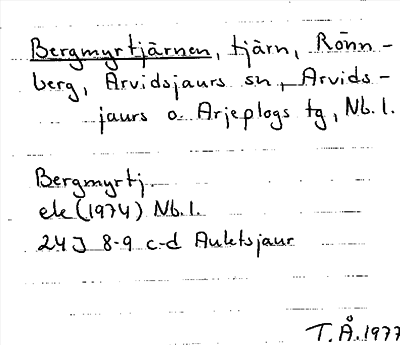 Bergmyrtjärnen, tjärn, Rönn-
berg, Arvidsjaurs sn, Arvids-
jaurs o Arjeplogs tg, Nb. l.
Bergmyrtj.
ek (1974) Nb. l.
24J 8-9 c-d Auktsjaur
T.Å. 1977